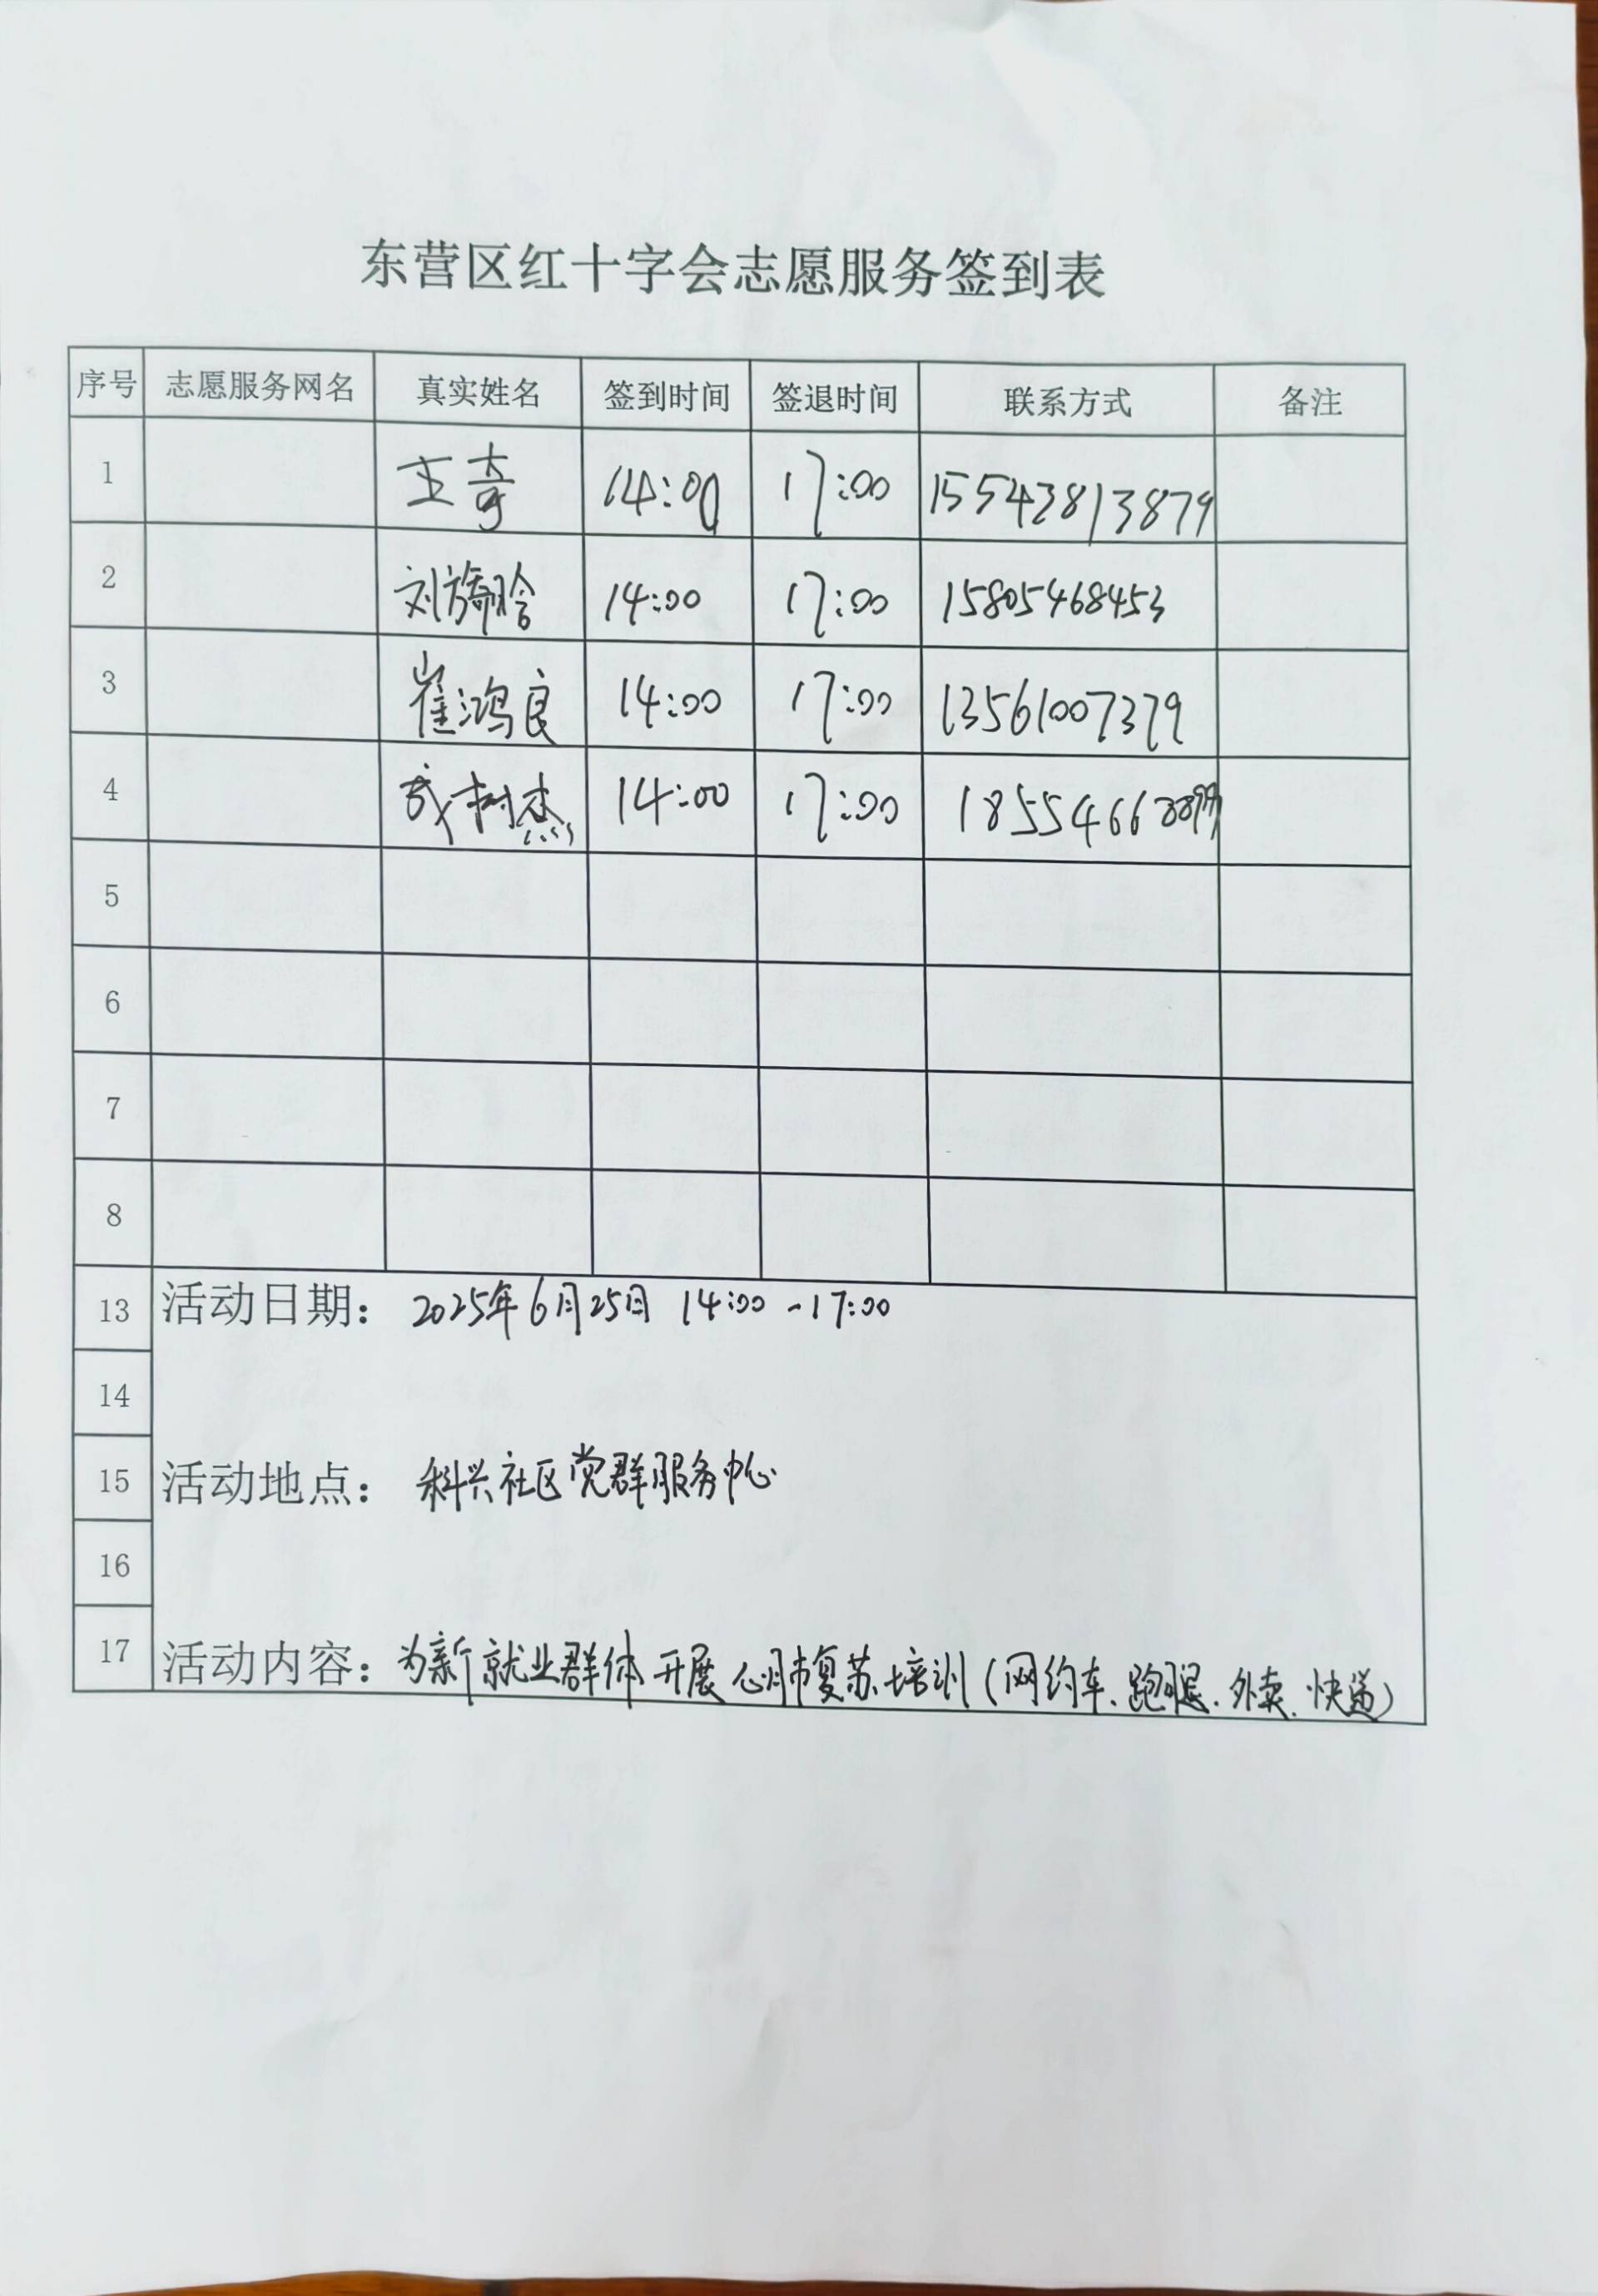 东营区红十字会志愿服务签到表
序号 志愿服务网名 真实姓名 签到时间 签退时间 联系方式 备注
1 王奇 14:00 17:00 15542813879
2 刘旖晗 14:00 17:00 15805468453
3 崔鸿良 14:00 17:00 13561007379
4 树杰 14:00 17:00
5
6
7
8
13 活动日期：2025年6月25日 14:00-17:00
14
15 活动地点：科兴社区党群服务中心
16
17 活动内容：为新就业群体开展心肺复苏培训（网约车、跑腿、外卖、快递）